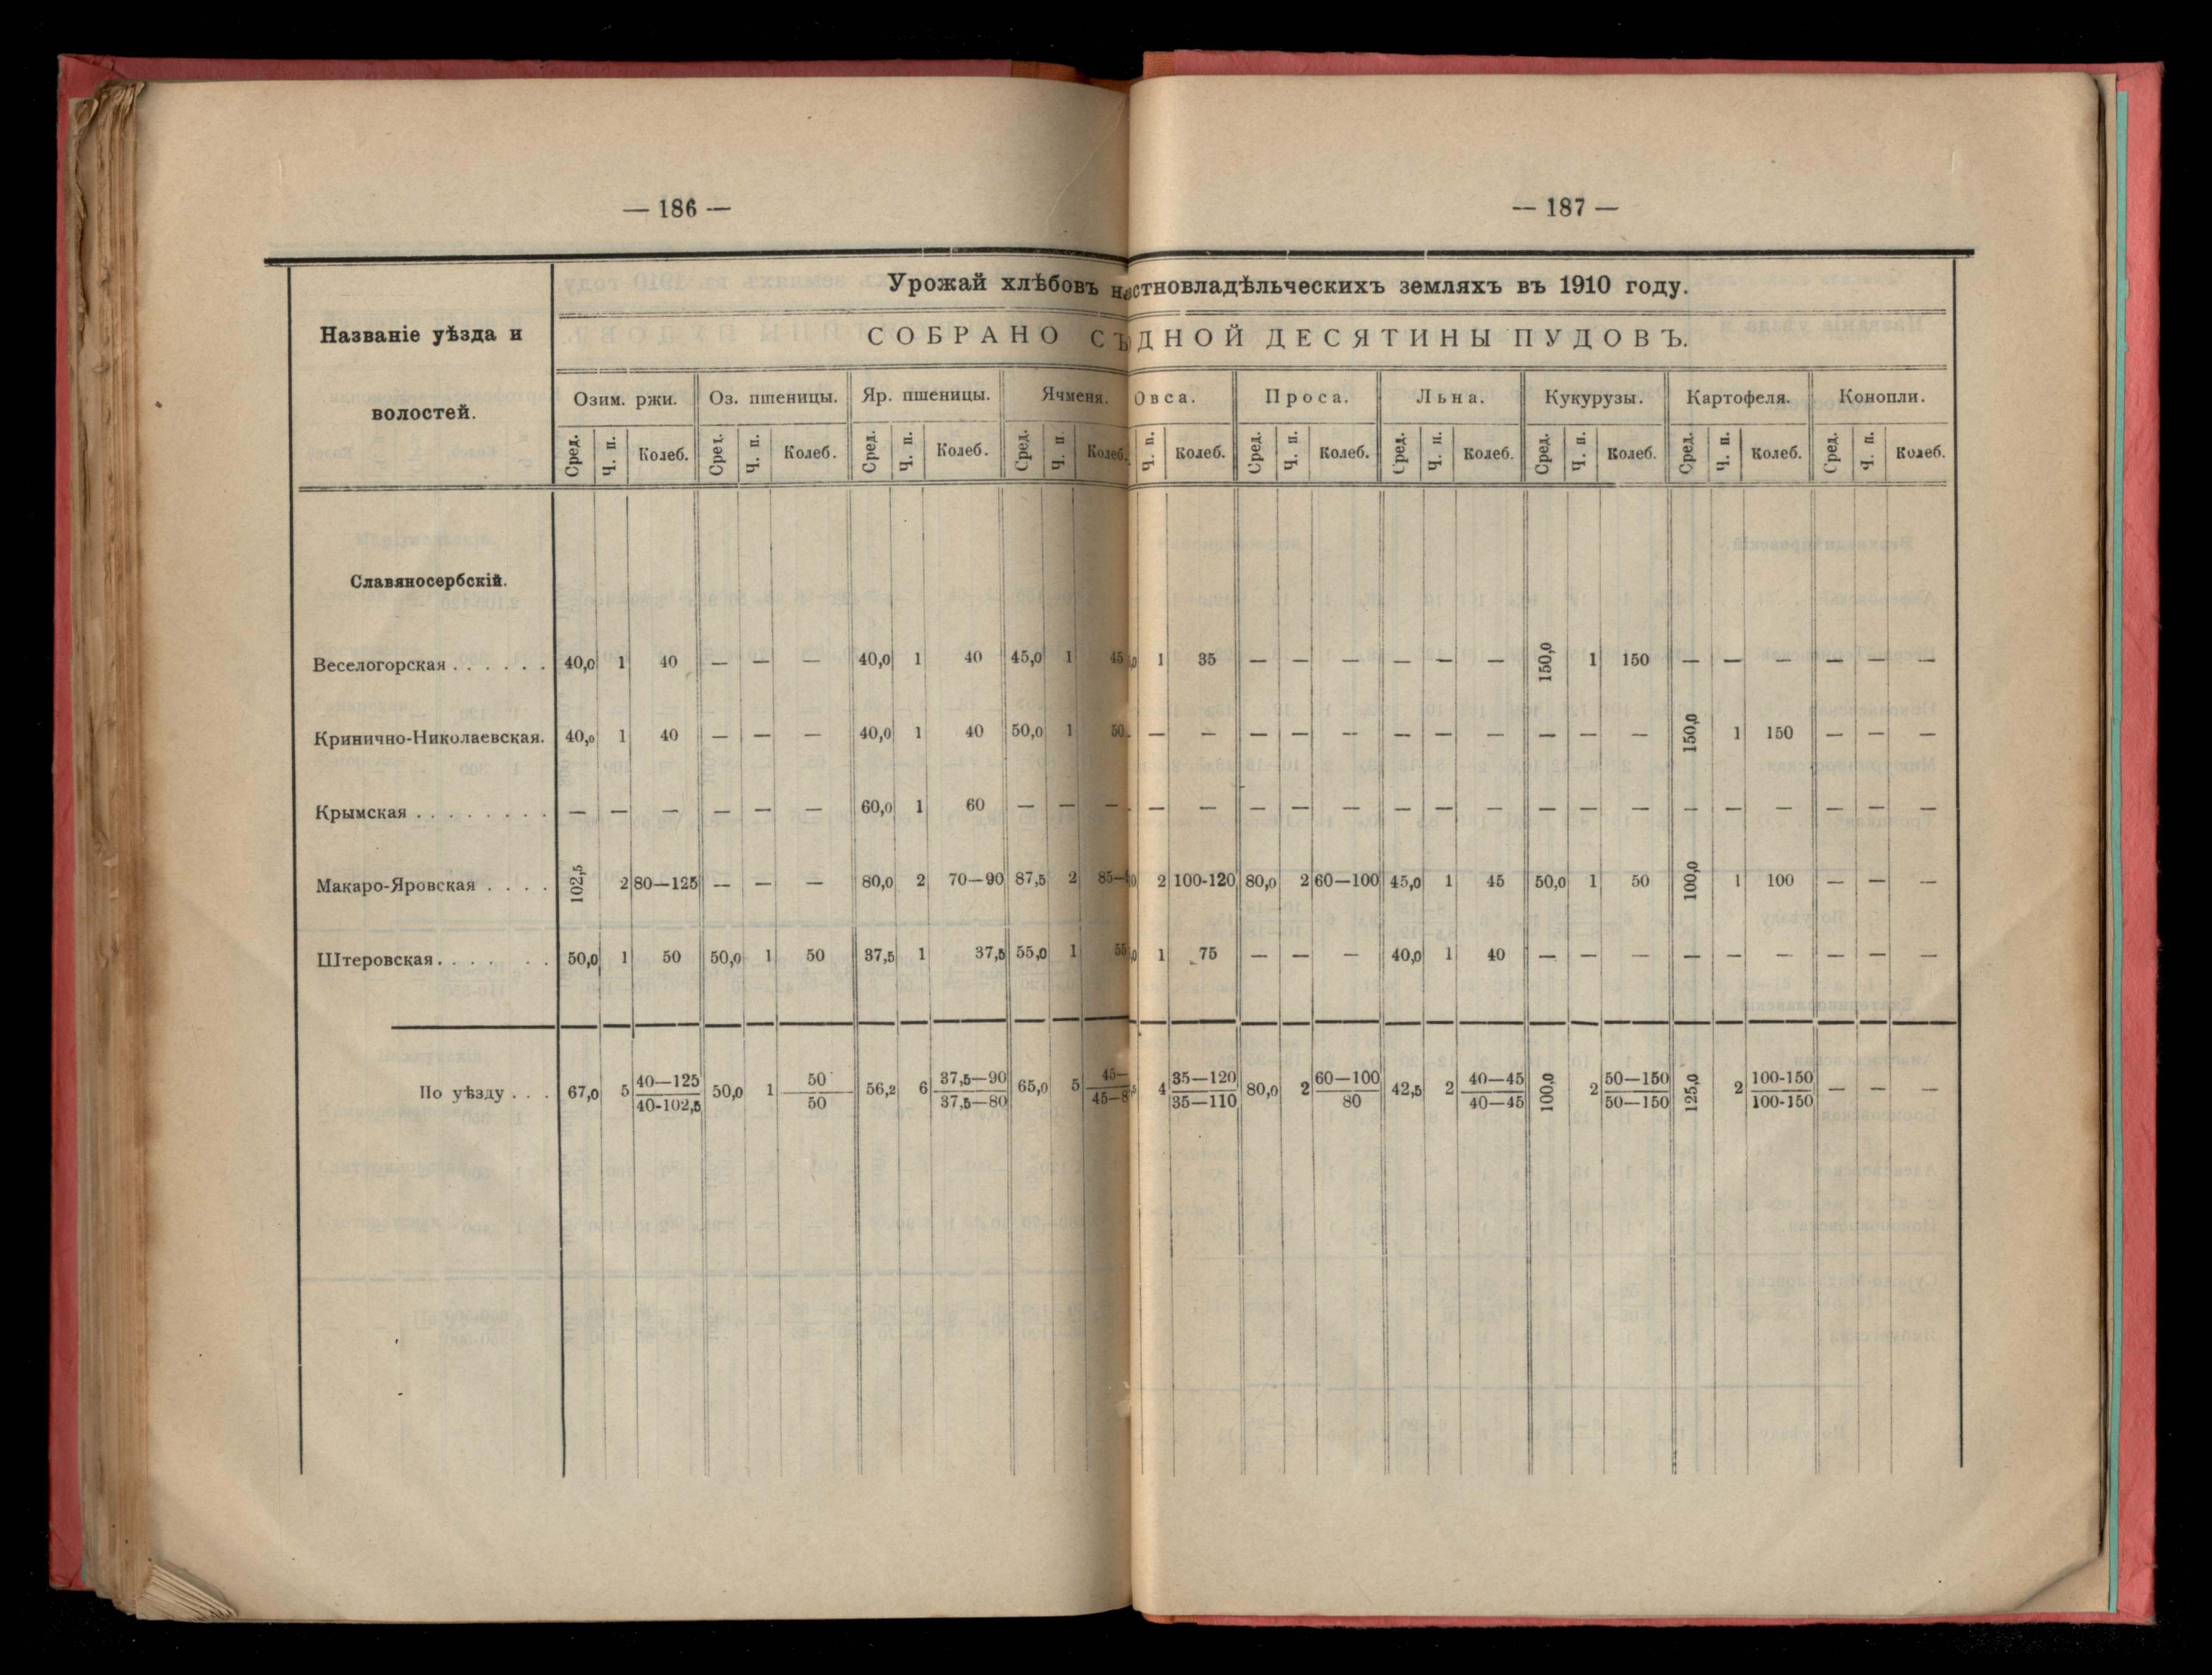 — 186 —
— 187 —
Урожай хлѣбовъ н стновладѣльческихъ земляхъ въ 1910 году.
Названіе уѣзда и
волостей.
СОБРАНО СЪ ДНОЙ ДЕСЯТИНЫ ПУДОВЪ.
Озим. ржи. Оз. пшеницы. Яр. пшеницы. Ячменя. Овса. Проса. Льна. Кукурузы. Картофеля. Конопли.
Сред. Ч. п. Колеб. Сред. Ч. п. Колеб. Сред. Ч. п. Колеб. Сред. Ч. п. Колеб. Ч. п. Колеб. Сред. Ч. п. Колеб. Сред. Ч. п. Колеб. Сред. Ч. п. Колеб. Сред. Ч. п. Колеб. Сред. Ч. п. Колеб.
Славяносербскій.
Веселогорская . . . . . . 40,0 1 40 — — — 40,0 1 40 45,0 1 45 1 35 — — — — — — 150,0 1 150 — — — — — —
Кринично-Николаевская. 40,0 1 40 — — — 40,0 1 40 50,0 1 50 — — — — — — — — — — — 150,0 1 150 — — —
Крымская . . . . . . . . — — — — — — 60,0 1 60 — — — — — — — — — — — — — — — — — — — —
Макаро-Яровская . . . . 102,5 2 80—125 — — — 80,0 2 70—90 87,5 2 85— 2 100-120 80,0 2 60—100 45,0 1 45 50,0 1 50 100,0 1 100 — — —
Штеровская. . . . . . 50,0 1 50 50,0 1 50 37,5 1 37,5 55,0 1 55 1 75 — — — 40,0 1 40 — — — — — — — — —
По уѣзду . . . 67,0 5 40—125 50,0 1 50 56,2 6 37,5—90 65,0 5 45— 4 35—120 80,0 2 60—100 42,5 2 40—45 100,0 2 50—150 125,0 2 100-150 — — —
40-102,5 50 37,5—80 45—8 35—110 80 40—45 50—150 100-150